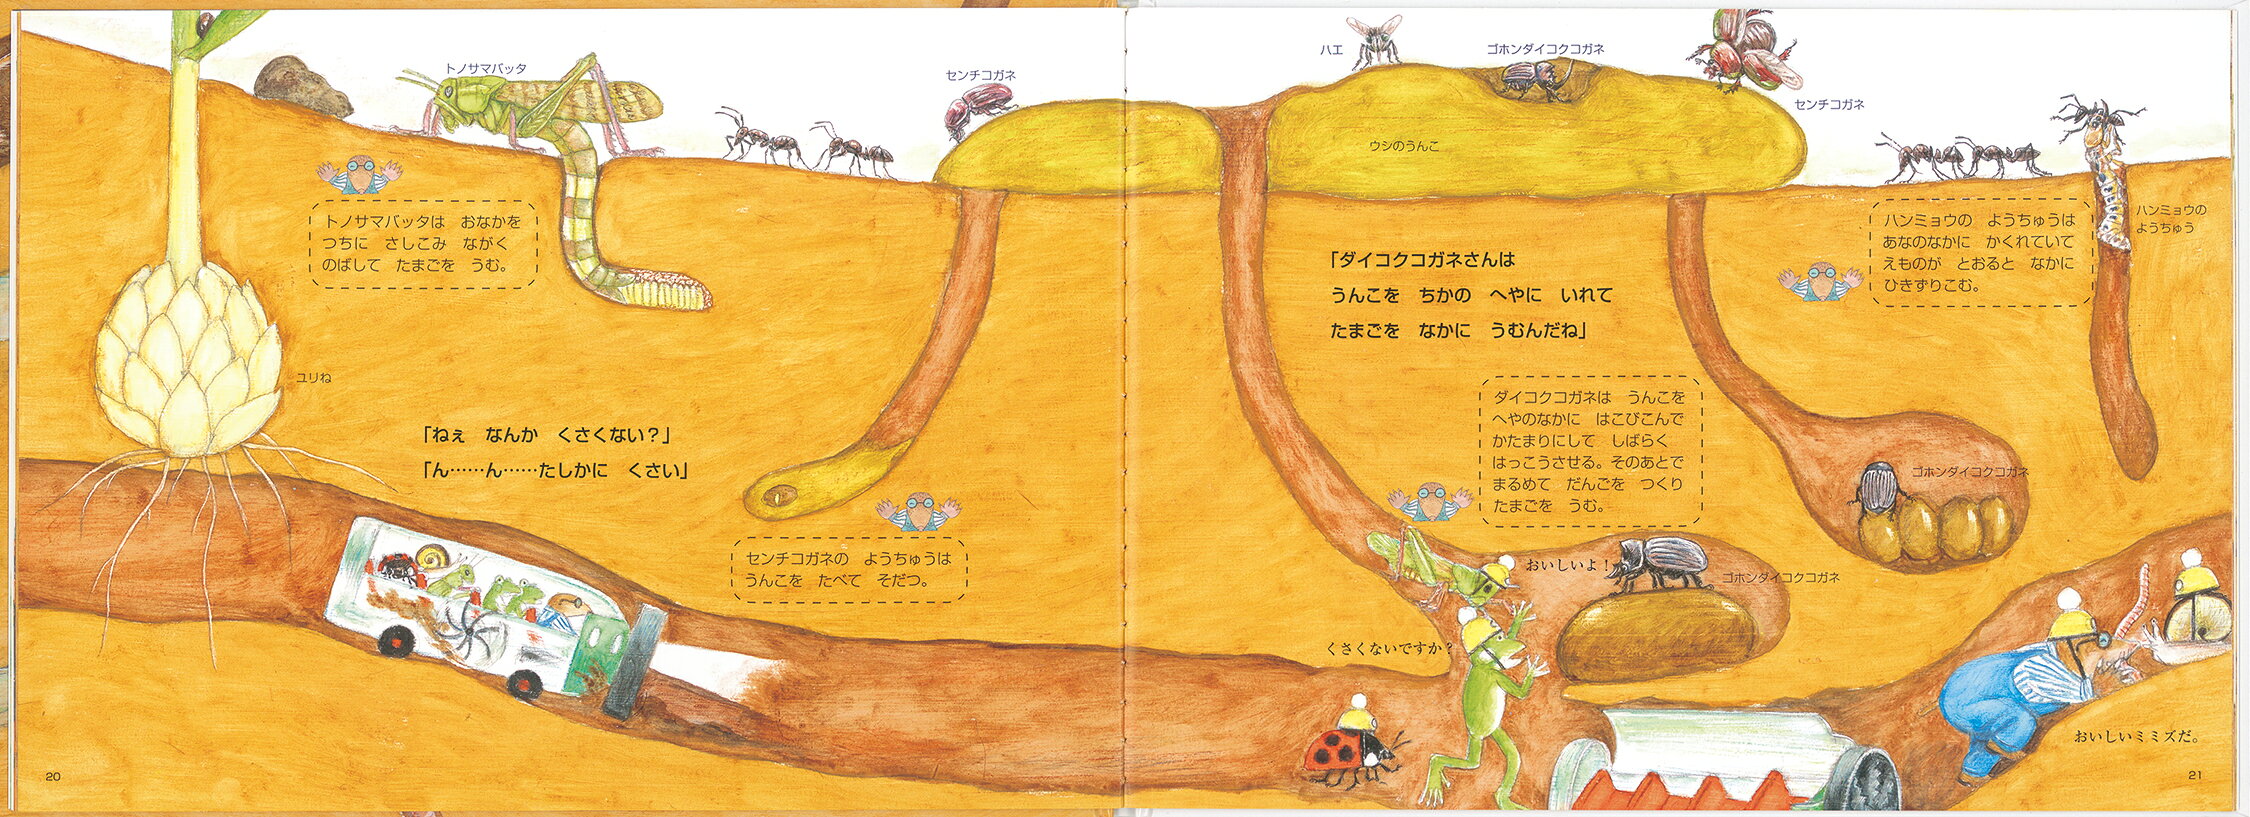 トノサマバッタ
トノサマバッタは　おなかを
つちに　さしこみ　ながく
のばして　たまごを　うむ。
ユリね
「ねぇ　なんか　くさくない？」
「ん……ん……たしかに　くさい」
センチコガネ
センチコガネの　ようちゅうは
うんこを　たべて　そだつ。
20
ハエ
ゴホンダイコクコガネ
センチコガネ
ウシのうんこ
「ダイコクコガネさんは
うんこを　ちかの　へやに　いれて
たまごを　なかに　うむんだね」
ハンミョウの　ようちゅうは
あなのなかに　かくれていて
えものが　とおると　なかに
ひきずりこむ。
ハンミョウの
ようちゅう
ダイコクコガネは　うんこを
へやのなかに　はこびこんで
かたまりにして　しばらく
はっこうさせる。そのあとで
まるめて　だんごを　つくり
たまごを　うむ。
ゴホンダイコクコガネ
おいしいよ！
ゴホンダイコクコガネ
くさくないですか？
おいしいミミズだ。
21